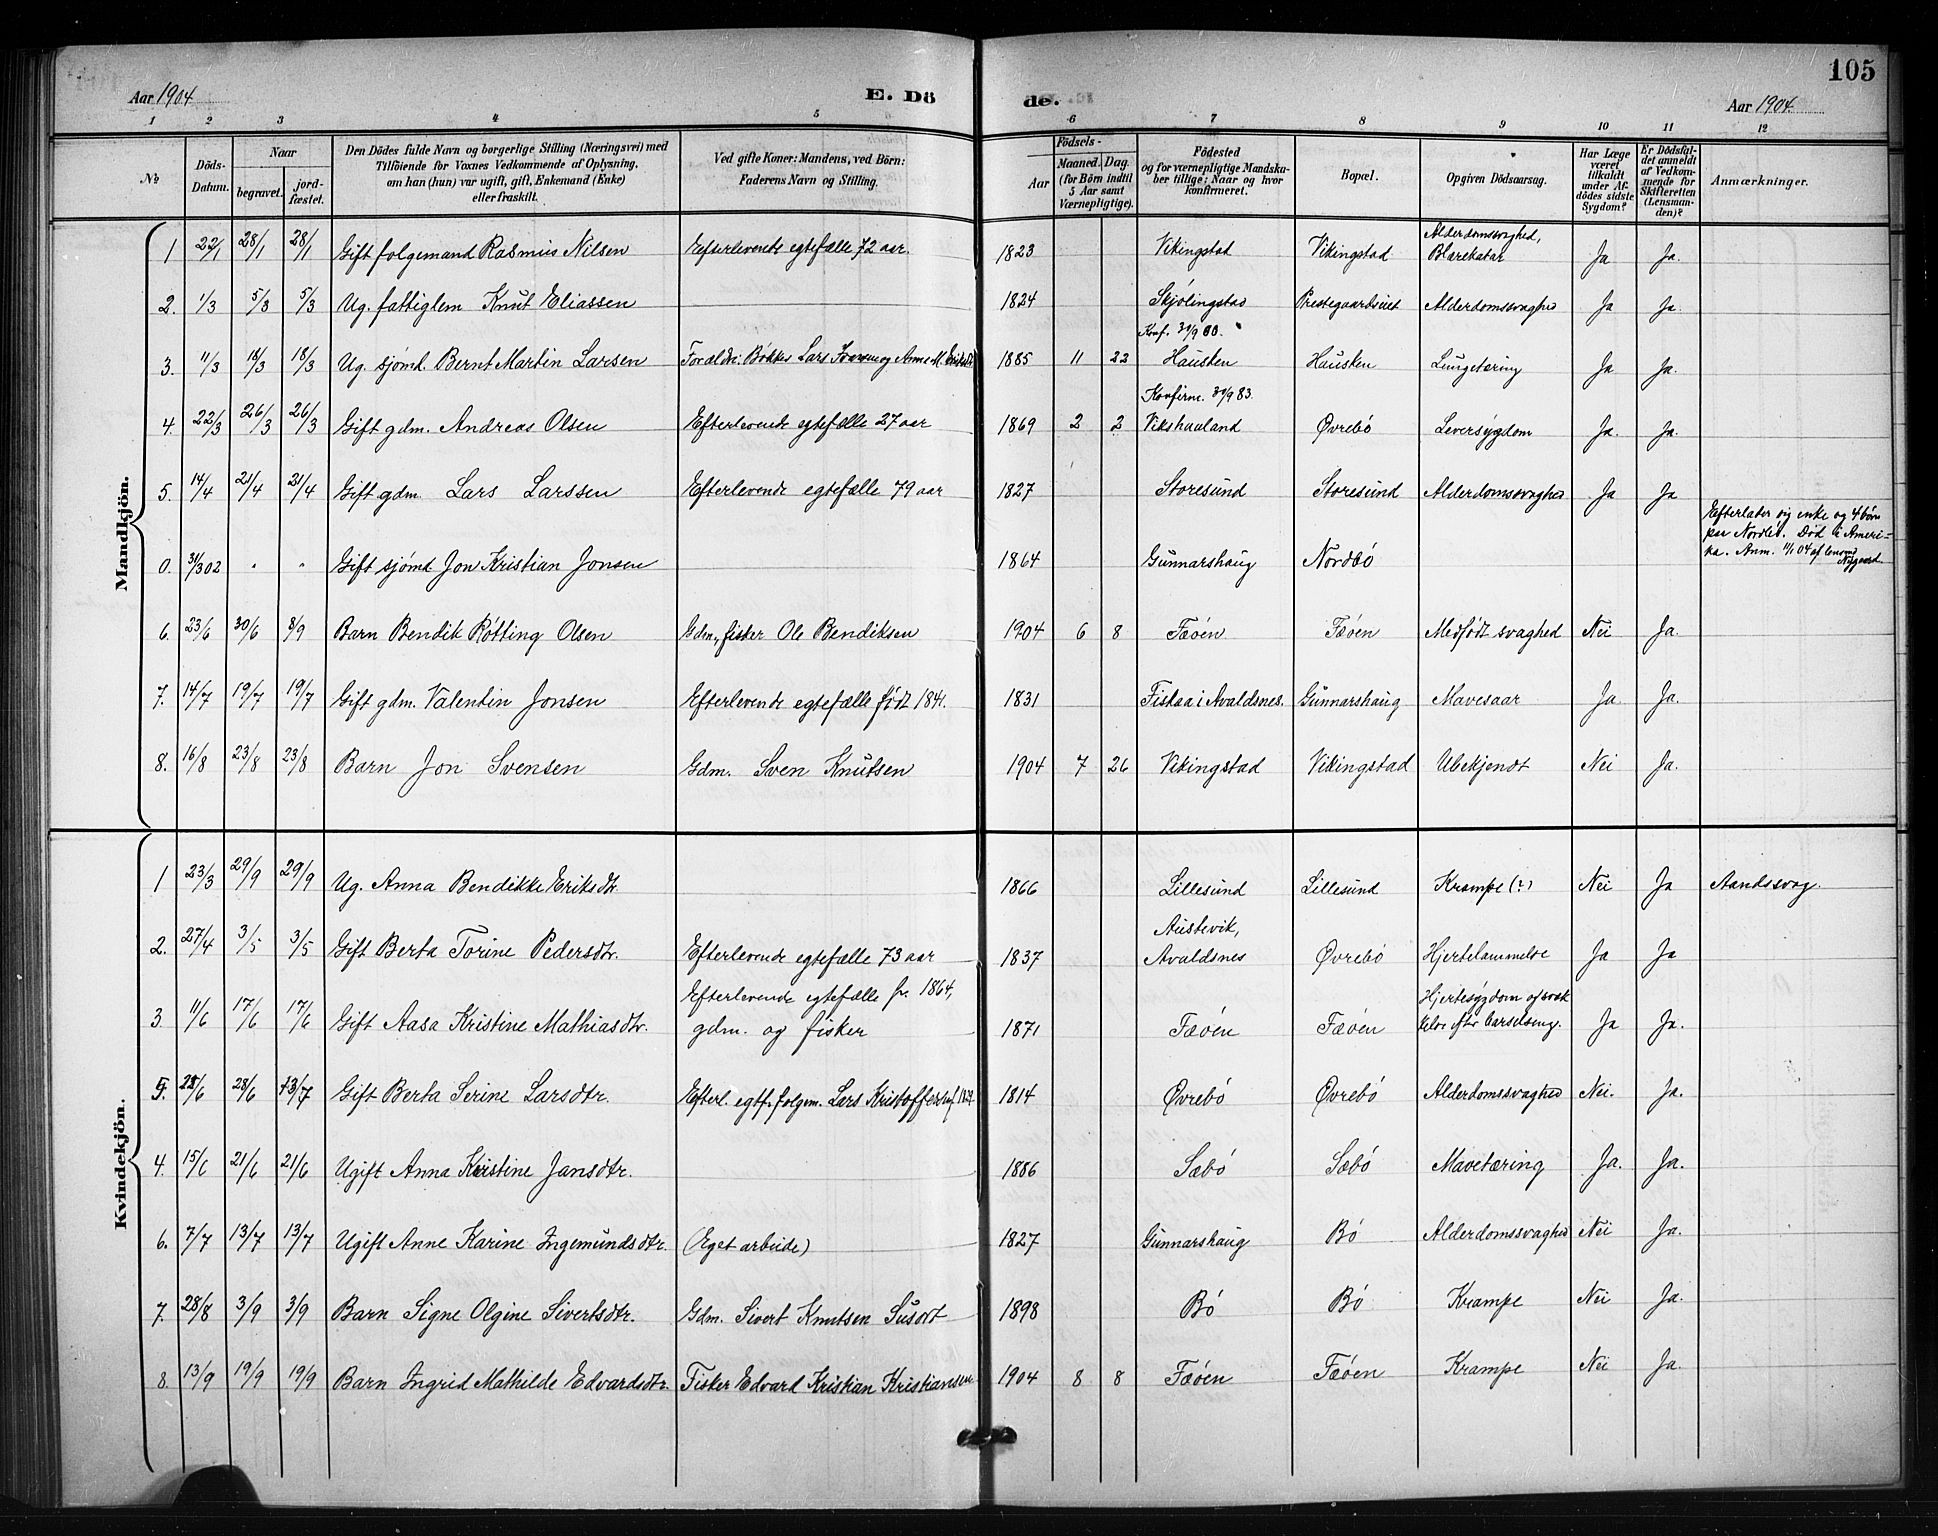 105
Aar 1904 E. Dö de. Aar 1904
1 2 3 4 5 6 7 8 9 10 11 12
№ Döds-Datum. Naar begravet. jordfæstet. Den Dödes fulde Navn og borgerlige Stilling (Næringsvei) med Tilföiende for Voxnes Vedkommende af Oplysning, om han (hun) var ugift, gift, Enkemand (Enke) eller fraskilt. Ved gifte Koner: Mandens, ved Börn: Faderens Navn og Stilling. Födsels- Aar Maaned. Dag. (for Børn indtil 5 Aar samt Værnepligtige). Födested og for værnepligtige Mandskaber tillige: Naar og hvor konfirmeret. Bopæl. Opgiven Dödsaarsag. Har Læge været tilkaldt under Afdödes sidste Sygdom? Er Dödsfaldet anmeldt af Vedkommende for Skifteretten (Lensmanden)? Anmærkninger.
Mandkjön.
1 22/1 28/1 28/1 Gift folgemand Rasmus Nilsen Efterlevende egtefælle 72 aar. 1823 Vikingstad Vikingstad Alderdomssvaghed, Blærekatar Ja Ja.
2. 1/3 5/3 5/3 Ug. fattiglem Knut Eliassen 1824 Skjölingstad Prestegaardseiet Alderdomssvaghed Ja Ja.
3. 11/3 18/3 18/3 Ug. sjömd. Bernt Martin Larsen Foræld.: Lars og Anne M. 1885 11 22 Konf. Hausken Hausken Lungetæring Ja Ja.
4. 22/3 26/3 26/3 Gift gdm. Andreas Olsen Efterlevende egtefælle 27 aar 1869 2 2 Konfirm. 30/9 83. Vikshaaland Øvrebö Leversygdom Ja. Ja.
5. 14/4 21/4 21/4 Gift gdm. Lars Larssen Efterlevende egtefælle 79 aar 1827 Storesund Storesund Alderdomssvaghed Ja Ja
0. 31/3 02 " " Gift sjömd Jon Kristian Jonsen 1864 Gunnarshaug Nordbö Efterlader sig enke og 4 börn paa Nordbö. Död i Amerika. Anm. 11/1 04 af lensmd Nygaard.
6. 23/6 30/6 8/9 Barn Bendik Rötting Olsen Gdm., fisker Ole Bendiksen 1904 6 8 Fæöen Fæöen Medfödt svaghed Nei Ja.
7. 14/7 19/7 19/7 Gift gdm. Valentin Jonsen Efterlevende egtefælle födt 1841. 1831 Fiskaa i Avaldsnes. Gunnarshaug Mavesaar Ja. Ja.
8. 16/8 23/8 23/8 Barn Jon Svensen Gdm. Sven Knutsen 1904 7 26 Vikingstad Vikingstad Ubekjendt Nei Ja.
Kvindekjön.
1 23/3 29/9 29/9 Ug. Anna Bendikke Eriksdtr. 1866 Lillesund Lillesund Krampe (?) Nei Ja Aandssvag.
2. 27/4 3/5 3/5 Gift Berta Torine Pedersdtr. Efterlevende egtefælle 73 aar 1837 Austevik, Avaldsnes Øvrebö Hjertelammelse Ja Ja
3 11/6 17/6 17/6 Gift Aasa Kristine Mathiasdtr. Efterlevende egtefælle f. 1864, gdm. og fisker 1871 Fæöen Fæöen Hjertesygdom efter barselseng. Ja Ja.
5. 22/6 28/6 13/7 Gift Berta Serine Larsdtr. Efterl. egtf. folgem. Lars Kristoffersen 1814 Øvrebö Øvrebö Alderdomssvaghed Nei. Ja.
4. 15/6 21/6 21/6 Ugift Anna Kristine Jansdtr. 1886 Sæbö Sæbö Mavetæring Ja. Ja.
6. 7/7 13/7 13/7 Ugift Anne Karine Ingemundsdtr. (Eget arbeide) 1827 Gunnarshaug Bö Alderdomssvaghed Nei Ja.
7. 28/8 3/9 3/9 Barn Signe Olgine Sivertsdtr. Gdm. Sivert Knutsen Susort 1898 Bö Bö Krampe Nei Ja.
8. 13/9 19/9 19/9 Barn Ingrid Mathilde Edvardsdtr. Fisker Edvard Kristian Kristiansen 1904 8 8 Fæöen Fæöen Krampe Nei Ja.